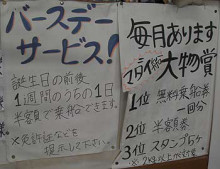 バースデー
サービス!
誕生日の前後
1週間のうちの1日
半額で乗船できます。
※免許証などを
提示して下さい。
毎月あります
マダイ 大物賞
1位 無料乗船券
一回分
2位 半額券
3位 スタンプ5ケ